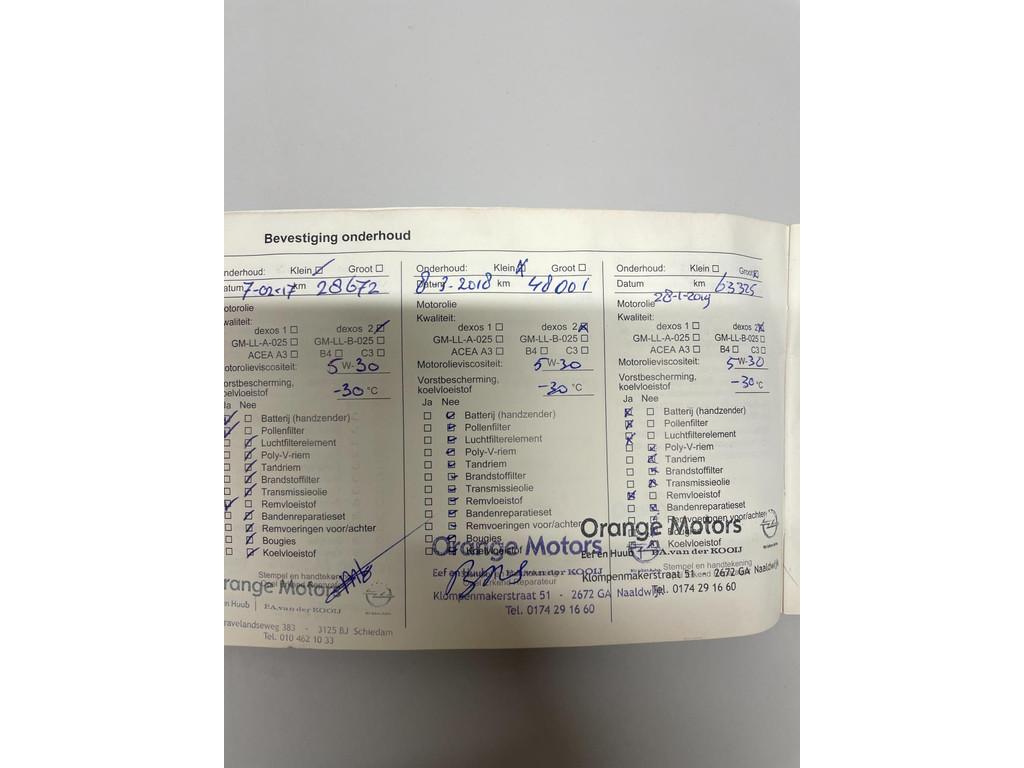 Bevestiging onderhoud
nderhoud: Klein ☑ Groot ☐
atum 7-02-17 km 28672
otorolie
waliteit:
dexos 1 ☐ dexos 2 ☑
GM-LL-A-025 ☐ GM-LL-B-025 ☐
ACEA A3 ☐ B4 ☐ C3 ☐
otorolieviscositeit: 5 W-30
orstbescherming,
oelvloeistof -30 °C
Ja Nee
☑ ☐ Batterij (handzender)
☑ ☐ Pollenfilter
☐ ☑ Luchtfilterelement
☐ ☑ Poly-V-riem
☐ ☑ Tandriem
☐ ☑ Brandstoffilter
☐ ☑ Transmissieolie
☑ ☐ Remvloeistof
☐ ☑ Bandenreparatieset
☐ ☑ Remvoeringen voor/achter
☐ ☑ Bougies
☐ ☑ Koelvloeistof
Stempel en handtekening
range Motors
n Huub P.A. van der KOOIJ
ravelandseweg 383 - 3125 BJ Schiedam
Tel. 010 462 10 33
Onderhoud: Klein ☑ Groot ☐
Datum 8-3-2018 km 48001
Motorolie
Kwaliteit:
dexos 1 ☐ dexos 2 ☑
GM-LL-A-025 ☐ GM-LL-B-025 ☐
ACEA A3 ☐ B4 ☐ C3 ☐
Motorolieviscositeit: 5 W-30
Vorstbescherming,
koelvloeistof -30 °C
Ja Nee
☐ ☑ Batterij (handzender)
☐ ☑ Pollenfilter
☐ ☑ Luchtfilterelement
☐ ☑ Poly-V-riem
☐ ☑ Tandriem
☐ ☑ Brandstoffilter
☐ ☑ Transmissieolie
☐ ☑ Remvloeistof
☐ ☑ Bandenreparatieset
☐ ☑ Remvoeringen voor/achter
☐ ☑ Bougies
☐ ☑ Koelvloeistof
Orange Motors
Eef en Huub P.A. van der KOOIJ
Klompenmakerstraat 51 - 2672 GA Naaldwijk
Tel. 0174 29 16 60
Onderhoud: Klein ☐ Groot ☑
Datum 28-1-2019 km 63325
Motorolie
Kwaliteit:
dexos 1 ☐ dexos 2 ☑
GM-LL-A-025 ☐ GM-LL-B-025 ☐
ACEA A3 ☐ B4 ☐ C3 ☐
Motorolieviscositeit: 5 W-30
Vorstbescherming,
koelvloeistof -30 °C
Ja Nee
☑ ☐ Batterij (handzender)
☑ ☐ Pollenfilter
☑ ☐ Luchtfilterelement
☐ ☑ Poly-V-riem
☐ ☑ Tandriem
☐ ☑ Brandstoffilter
☐ ☑ Transmissieolie
☑ ☐ Remvloeistof
☐ ☑ Bandenreparatieset
Remvoeringen voor/achter
Bougies
Koelvloeistof
Orange Motors
Eef en Huub P.A. van der KOOIJ
Stempel en handtekening
Klompenmakerstraat 51 - 2672 GA Naaldwijk
Tel. 0174 29 16 60